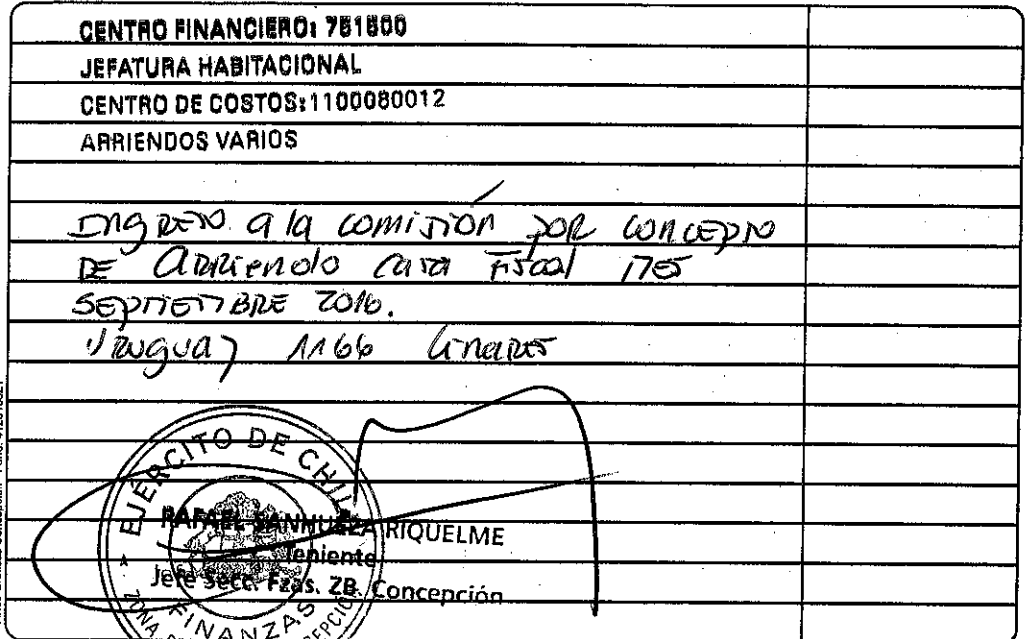 CENTRO FINANCIERO: 751500
JEFATURA HABITACIONAL
CENTRO DE COSTOS: 1100080012
ARRIENDOS VARIOS
Ingreso a la comisión por concepto
de Arriendo casa Fiscal mes
Septiembre 2016.
Uruguay 1166 Linares
EJÉRCITO DE CHILE
RAFAEL SANHUEZA RIQUELME
Teniente
Jefe Secc. Fzas. ZB. Concepción
FINANZAS
ZONA